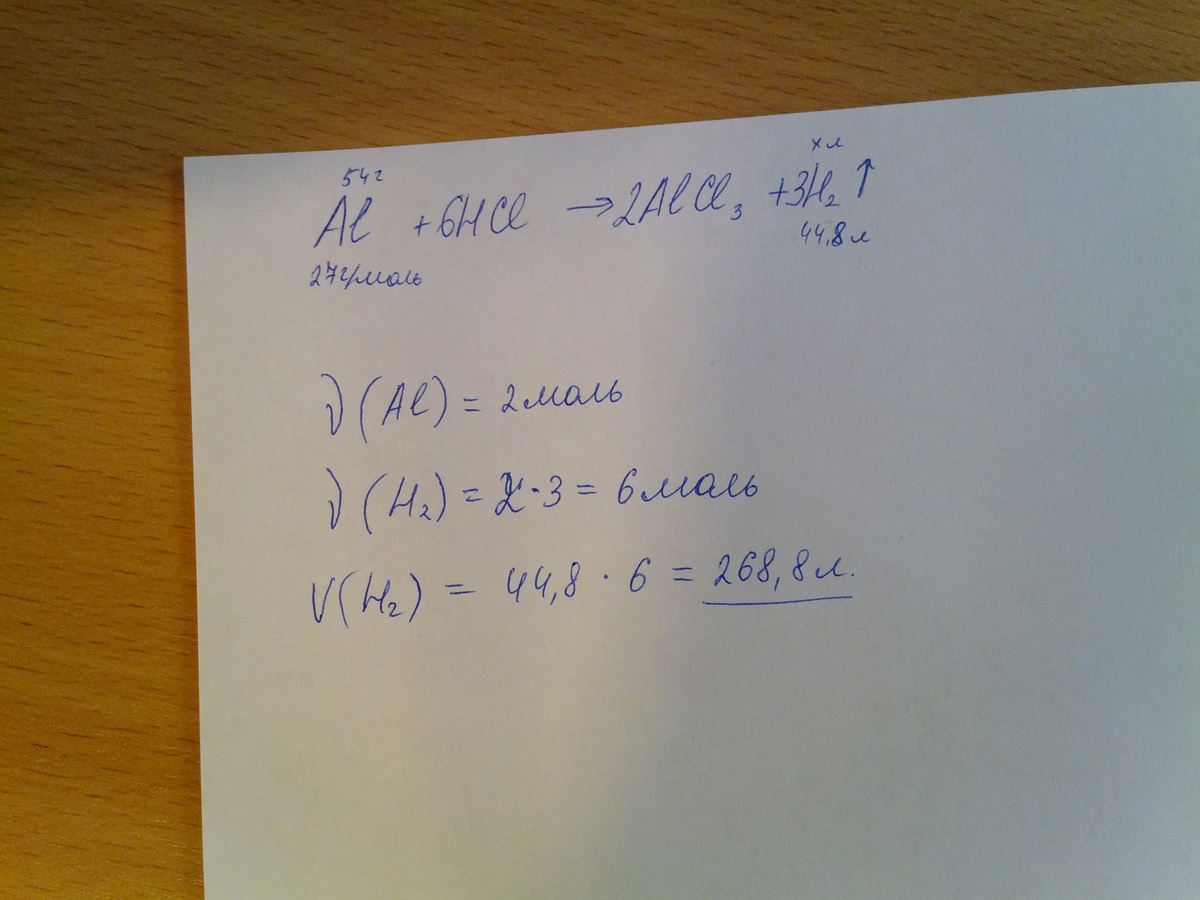 54г хл
Al + 6HCl → 2AlCl₃ + 3H₂ ↑
27г/моль 44,8л
ν(Al) = 2моль
ν(H₂) = 2·3 = 6моль
V(H₂) = 44,8 · 6 = 268,8л.